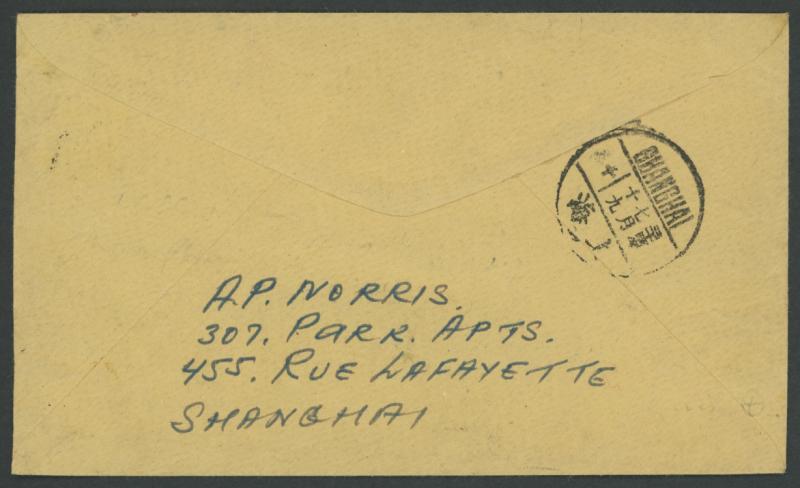 SHANGHAI
十七
九月
海
A.P. NORRIS.
307. PARK. APTS.
455. RUE LAFAYETTE
SHANGHAI